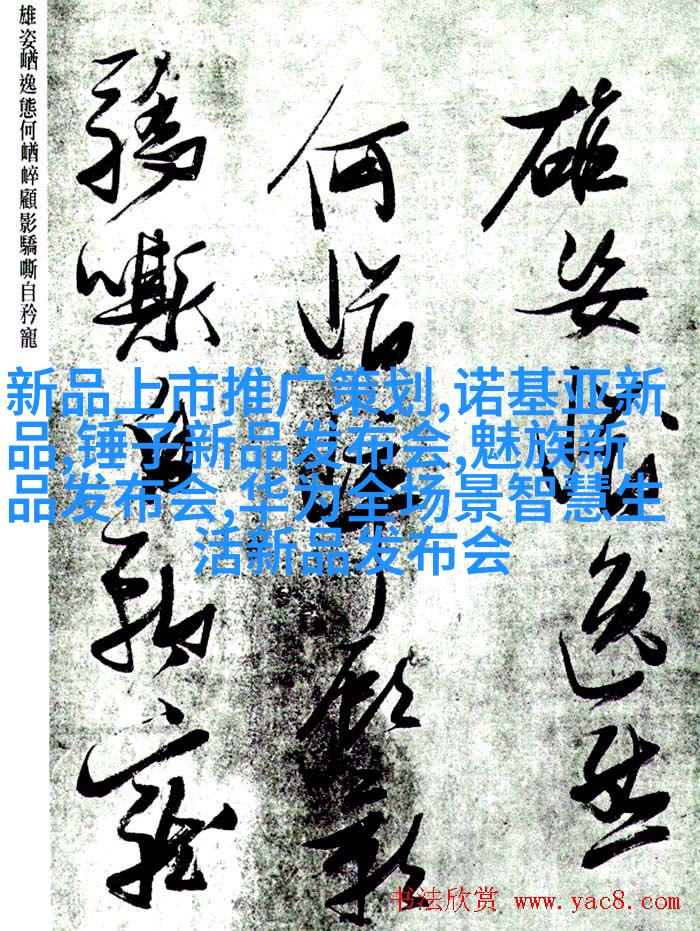 雄姿逸態
何崷崒顧影
驕嘶自矜寵
雄姿崷逸態何崷崒顧影驕嘶自矜寵
新品上市推广策划,诺基亚新
品,锤子新品发布会,魅族新
品发布会,华为全场景智慧生
活新品发布会
书法欣赏 www.yac8.com